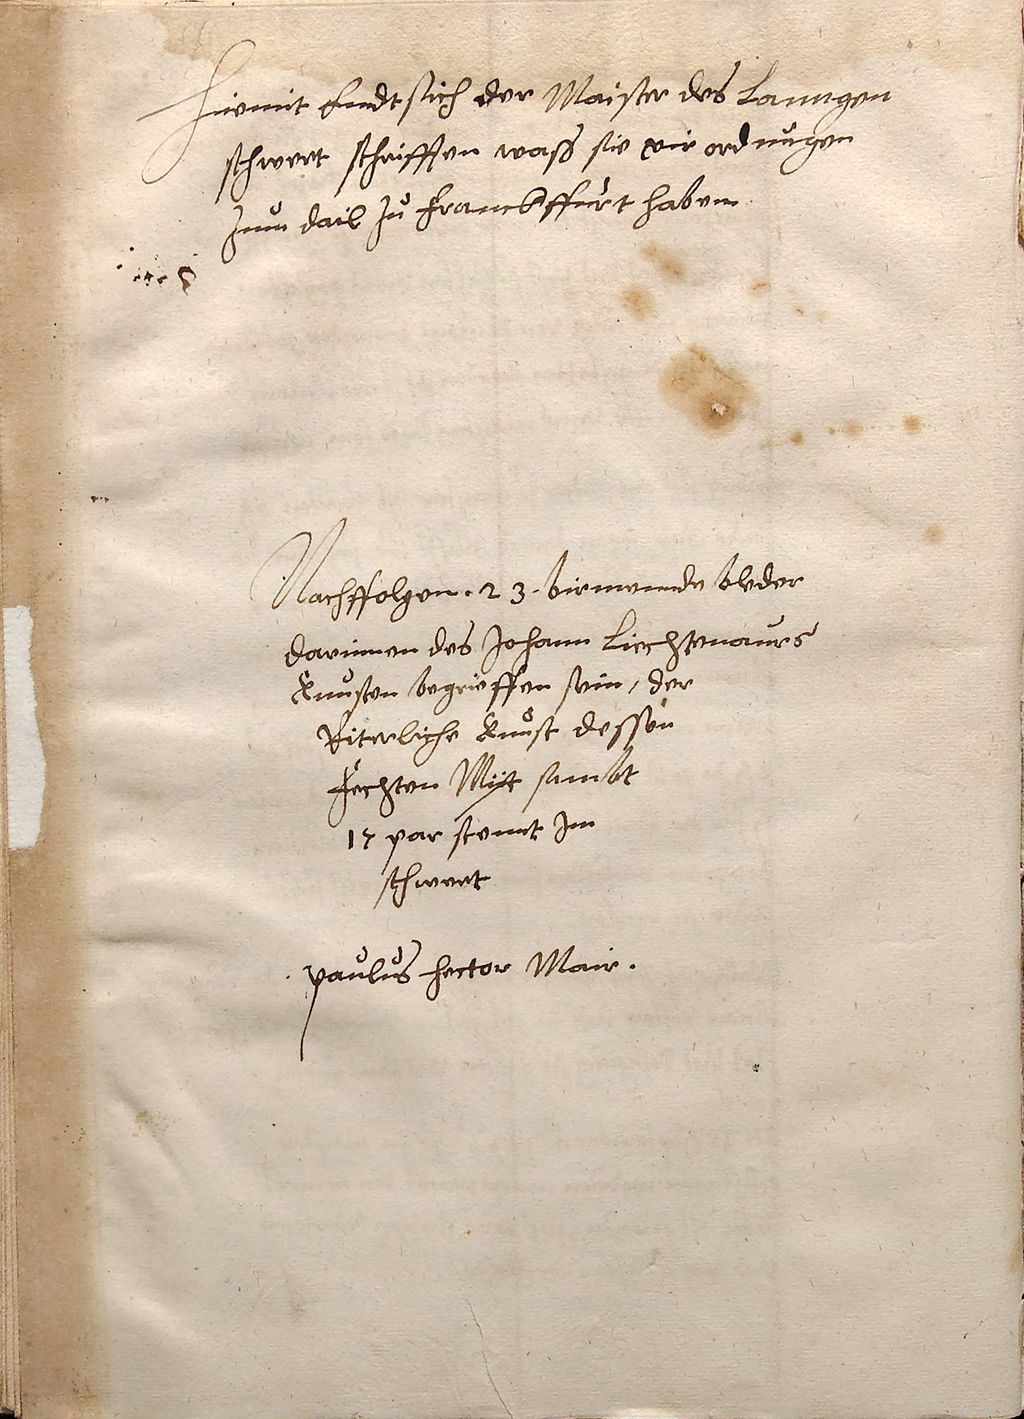 Hiemit Endt sich der Maister des Lanngen
schwert schrifften wass sie vir ordnungen
Inn dail zu Franckffurt haben
Nachffolgen . 23 . birmennde bleder
darinnen des Johann Liechtenaurs
Kunsten begrieffen sein, der
Riterliche Kunst dessen
Fechten Mit sambt
17 par stennt Im
schwert
. paulus hector Mair .